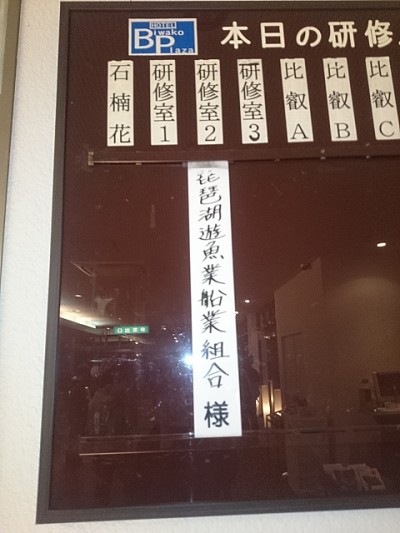 HOTEL
Biwako
Plaza
本日の研修
石楠花
研修室1
研修室2
研修室3
比叡A
比叡B
比叡C
琵琶湖遊魚業船業組合 様